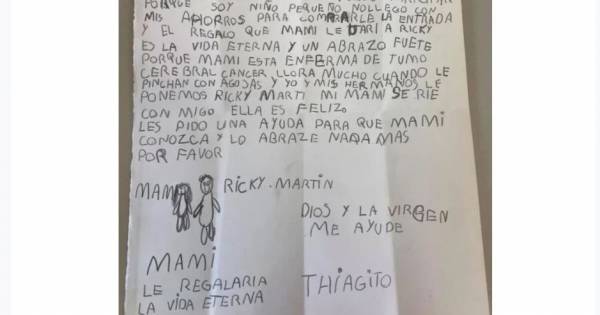 PORQUE SOY NIÑO PEQUEÑO NOLLEGO CON
MIS AHORROS PARA COMPRARLE LA ENTRADA
Y EL REGALO QUE MAMI LE DARIA RICKY
ES LA VIDA ETERNA Y UN ABRAZO FUETE
PORQUE MAMI ESTA ENFERMA DE TUMO
CEREBRAL CANCER LLORA MUCHO CUANDO LE
PINCHAN CON AGOJAS Y YO Y MIS HERMANOS LE
PONEMOS RICKY MARTI MI MAMI SE RIE
CON MIGO ELLA ES FELIZ
LES PIDO UNA AYUDA PARA QUE MAMI
CONOZCA Y LO ABRAZE NADA MAS
POR FAVOR
MAMI RICKY-MARTIN
DIOS Y LA VIRGEN
ME AYUDE
MAMI
LE REGALARIA
LA VIDA ETERNA
THIAGITO